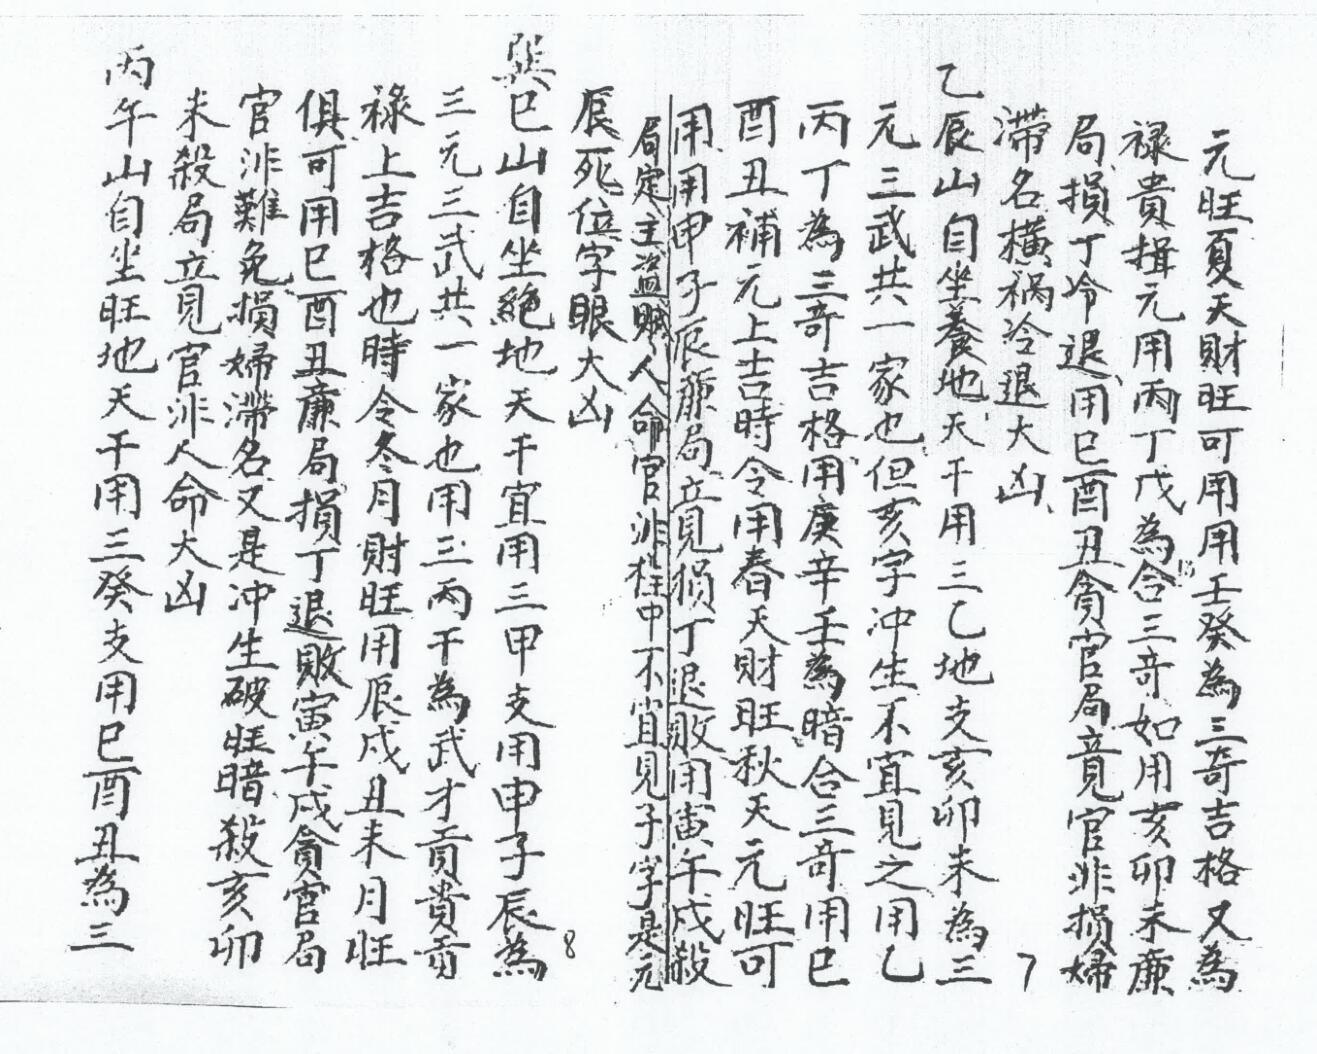 元旺夏天財旺可用用壬癸為三奇吉格又為
祿貴揖元用丙丁戊為合三奇如用亥卯未廉
局損丁冷退用巳酉丑貪官局竟官非損婦
滯名橫禍冷退大凶
7
乙辰山自坐養地天干用三乙地支亥卯未為三
元三武共一家也但亥字沖生不宜見之用乙
丙丁為三奇吉格用庚辛壬為暗合三奇用巳
酉丑補元上吉時令用春天財旺秋天元旺可
用用申子辰廉局立見損丁退敗用寅午戌殺
局定主盜賊人命官非柱中不宜見子字是元
辰死位字眼大凶
8
巽巳山自坐絕地天干宜用三甲支用申子辰為
三元三武共一家也用三丙干為武才貢貴貢
祿上吉格也時令冬月財旺用辰戌丑未月旺
俱可用巳酉丑廉局損丁退敗寅午戌貪官局
官非難免損婦滯名又是沖生破旺暗殺亥卯
未殺局立見官非人命大凶
丙午山自坐旺地天干用三癸支用巳酉丑為三